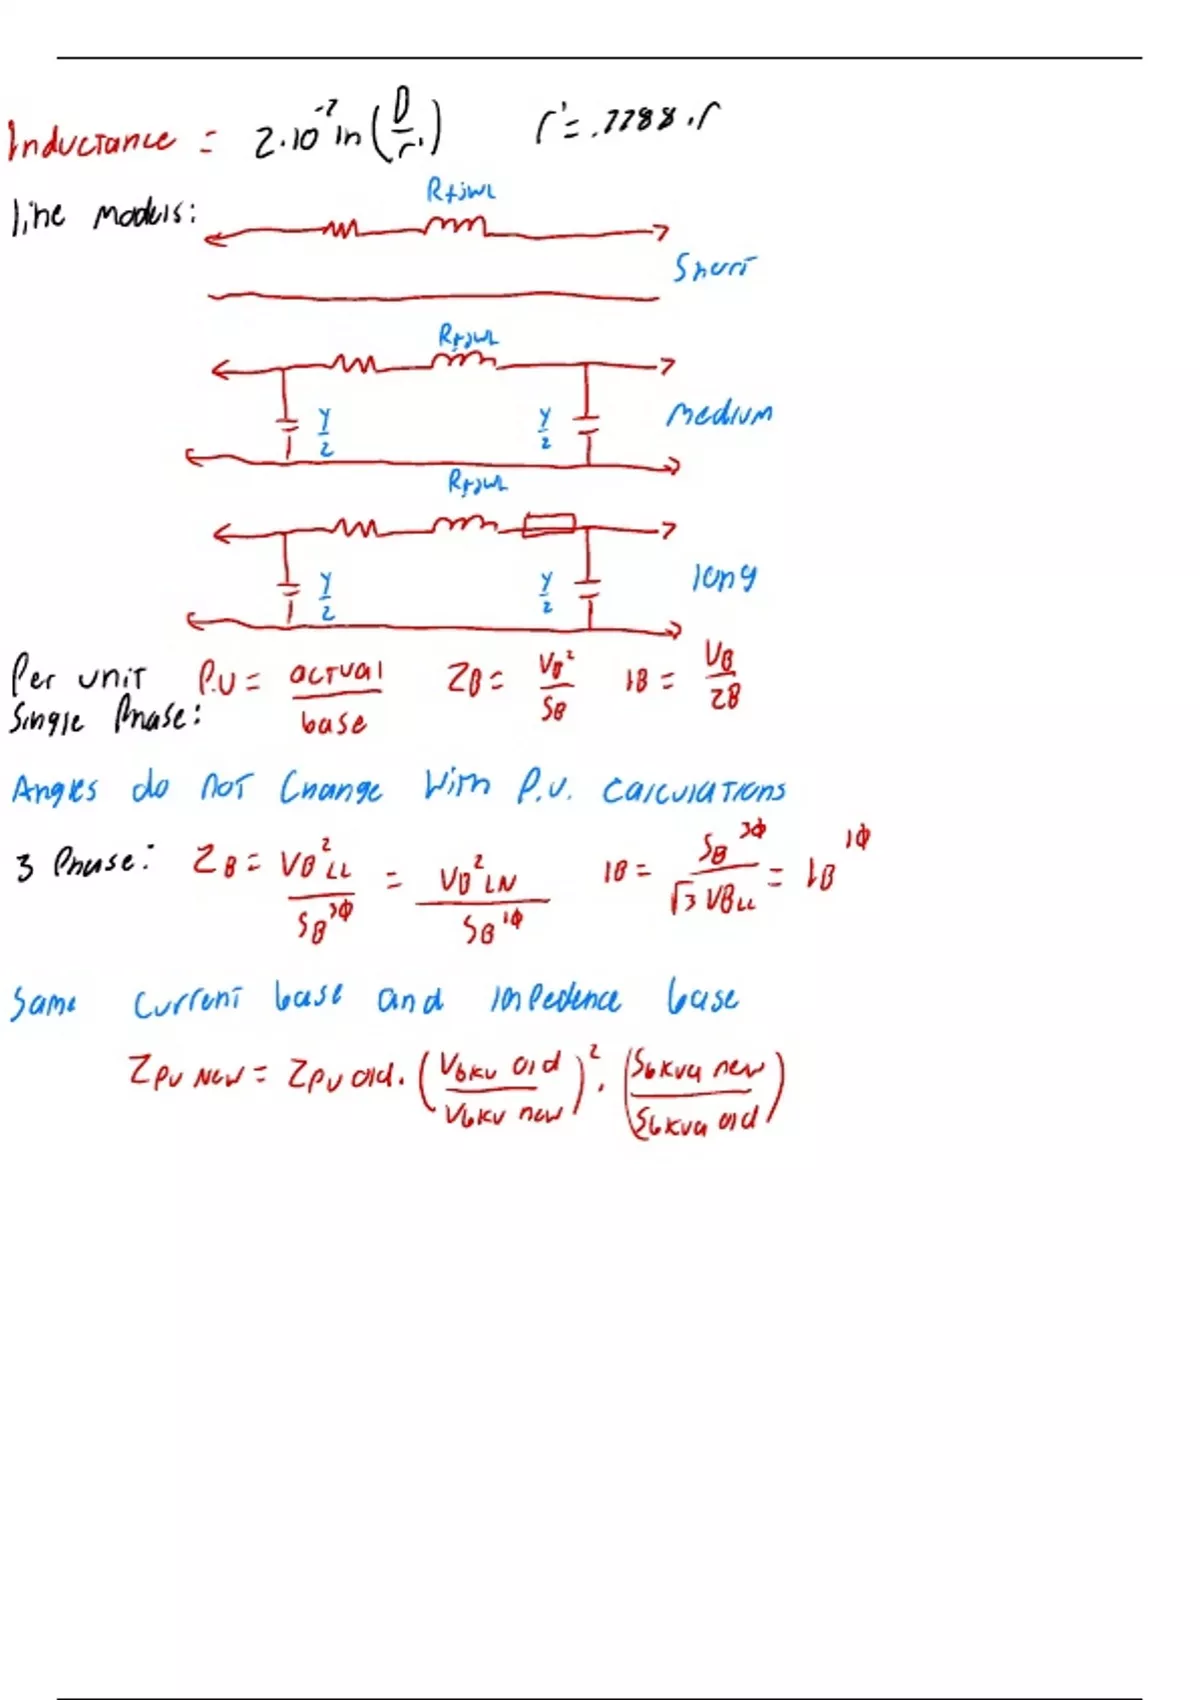 Inductance = 2·10^-7 ln(D/r') r' = .7788·r
line models:
R+jwL
Short
R+jwL
Y/2 Y/2 Medium
R+jwL
Y/2 Y/2 long
Per unit P.U = actual/base ZB = VB²/SB IB = VB/ZB
Single Phase:
Angles do not Change With P.U. calculations
3 Phase: ZB = VB²LL/SB^3Φ = VB²LN/SB^1Φ IB = SB^3Φ/√3 VBLL = IB^1Φ
Same Current base and impedence base
ZPU New = ZPU old · (Vbkv old/Vbkv new)² · (Sbkva new/Sbkva old)